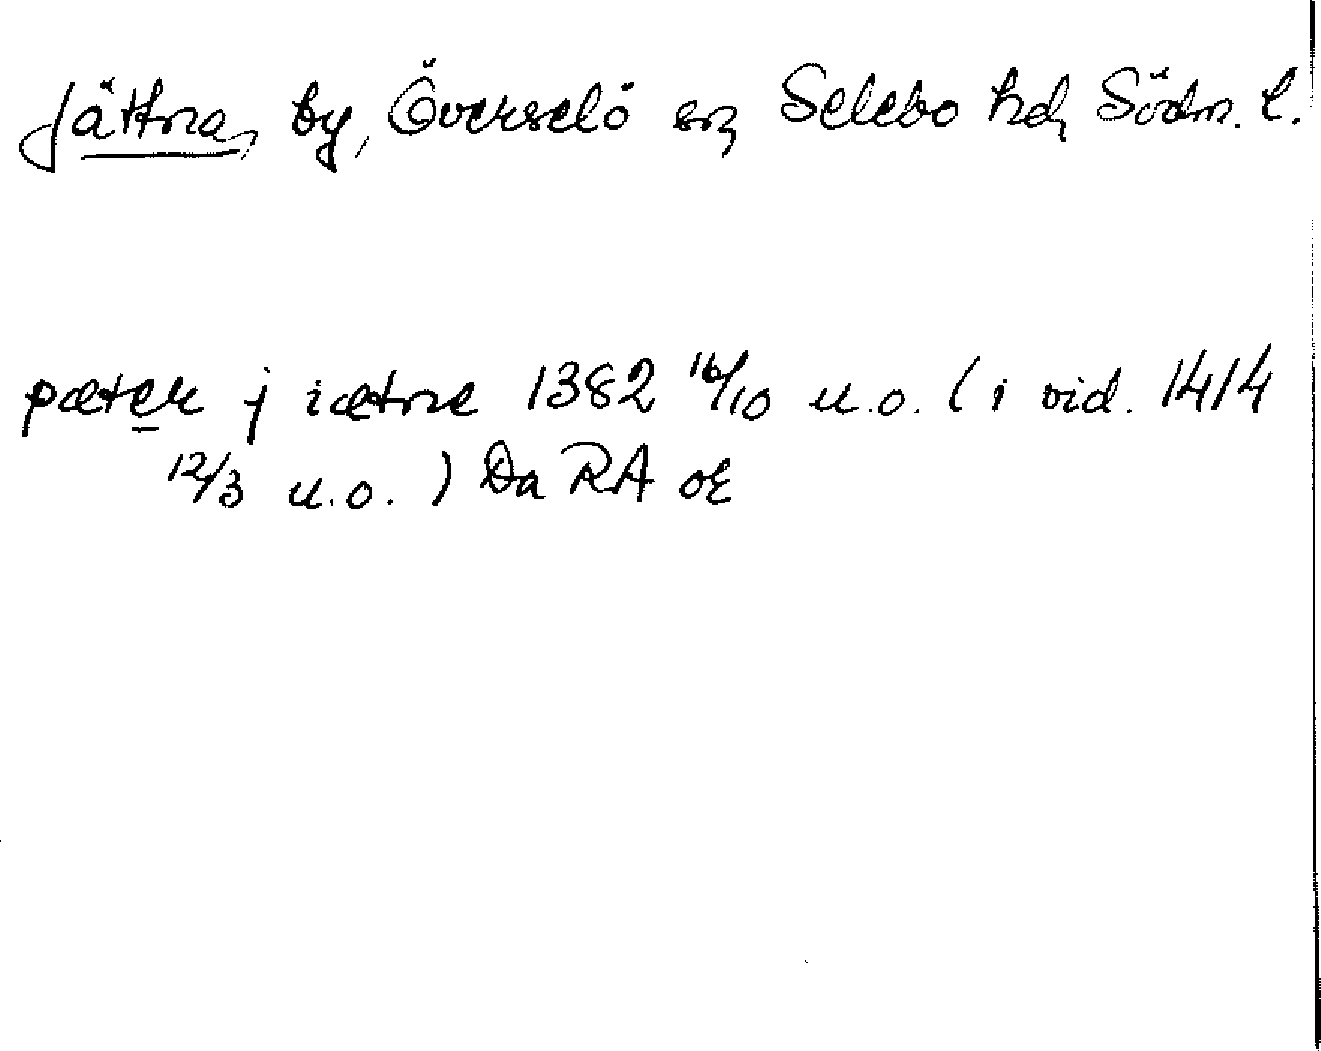 Jättna, by, Överselö sn, Selebo hd, Södm. l.
pæter j iætne 1382 16/10 u.o. (i vid. 1414
12/3 u.o.) Da RA oξ